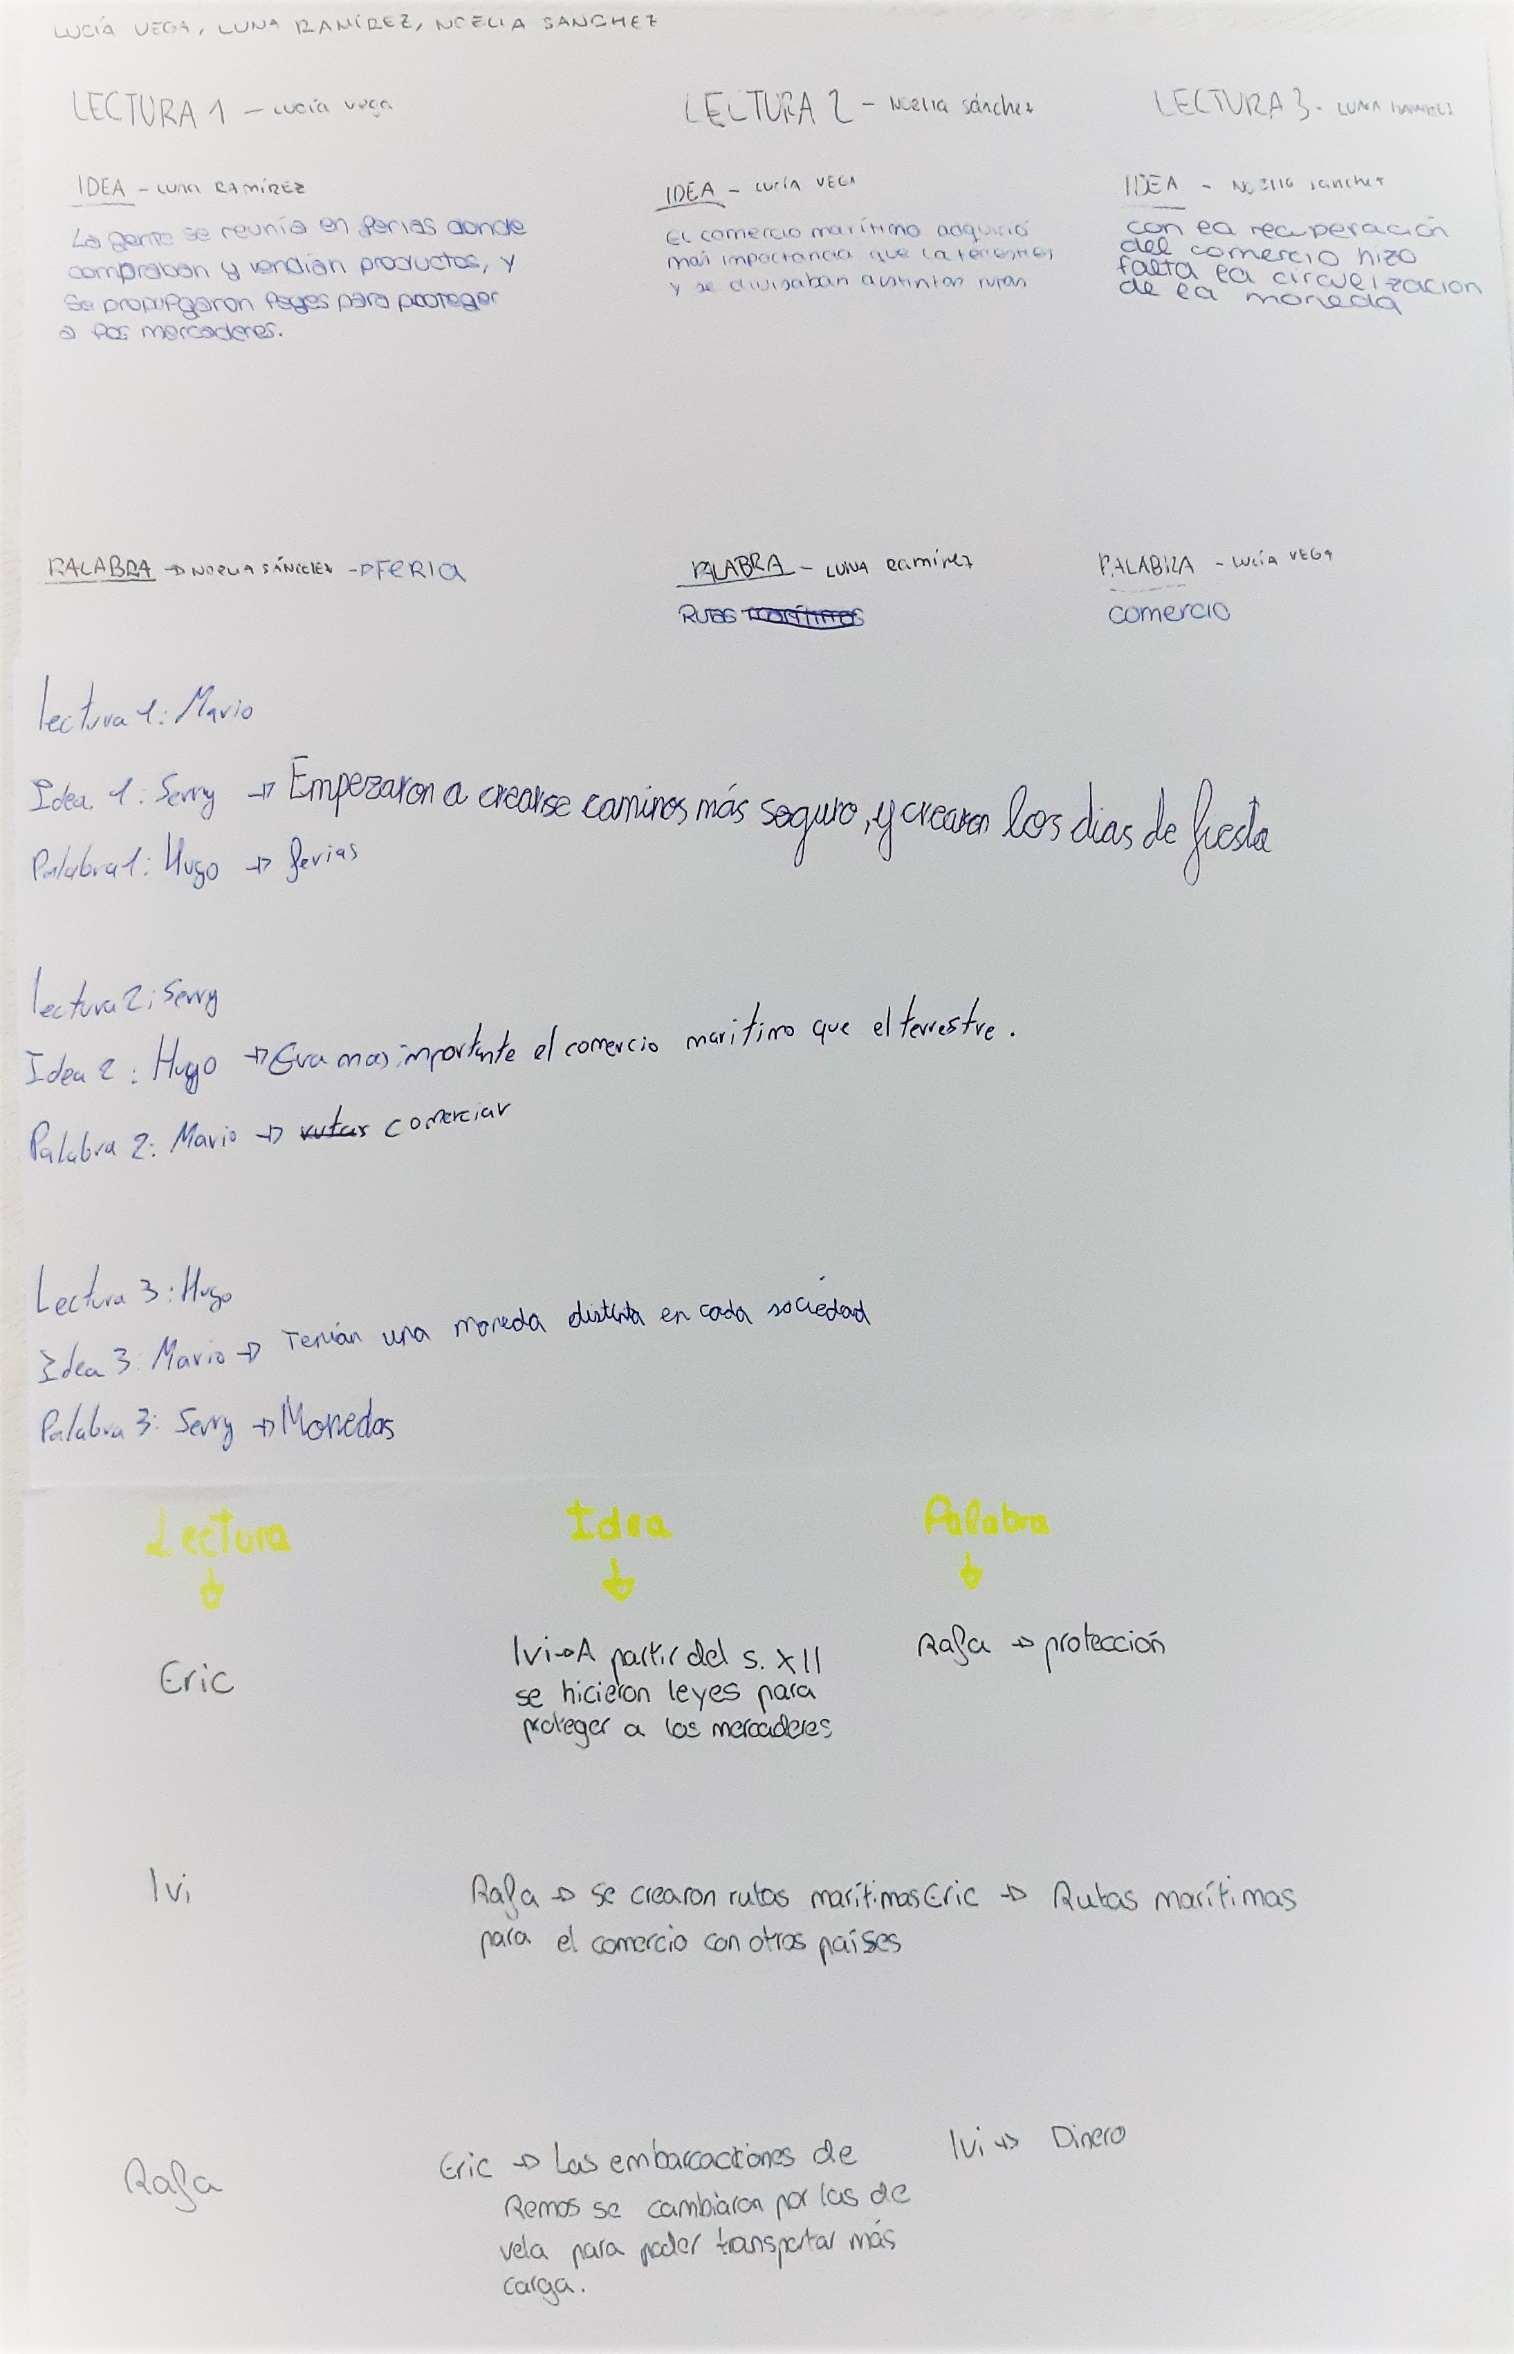 LUCÍA VEGA, LUNA RAMÍREZ, NOELIA SANCHEZ
LECTURA 1 - Lucía Vega
IDEA - LUNA RAMÍREZ
La gente se reunía en ferias donde
compraban y vendían productos, y
se propulgaron leyes para proteger
a los mercaderes.
PALABRA → NOELIA SÁNCHEZ → FERIA
LECTURA 2 - Noelia Sánchez
IDEA - LUCÍA VEGA
El comercio marítimo adquirió
mas importancia que la terrestre,
y se divisaban distintas rutas
PALABRA - LUNA Ramírez
RUTAS
LECTURA 3 - LUNA RAMÍREZ
IDEA - NOELIA Sánchez
con la recuperación
del comercio hizo
falta la circuelización
de la moneda
PALABRA - Lucía VEGA
comercio
Lectura 1: Mario
Idea 1: Serry → Empezaron a crearse caminos más seguro, y crearon los dias de fiesta
Palabra 1: Hugo → ferias
Lectura 2: Serry
Idea 2: Hugo → Era mas importante el comercio maritimo que el terrestre.
Palabra 2: Mario → rutas comerciar
Lectura 3: Hugo
Idea 3: Mario → Tenían una moneda distinta en cada sociedad
Palabra 3: Serry → Monedas
Lectura Idea Palabra
Eric
Ivi → A partir del s. XII
se hicieron leyes para
proteger a los mercaderes
Rafa → protección
Ivi
Rafa → se crearon rutas marítimas
para el comercio con otros países
Eric → Rutas marítimas
Rafa
Eric → Las embarcaciones de
Remos se cambiaron por las de
vela para poder transportar más
carga.
Ivi → Dinero